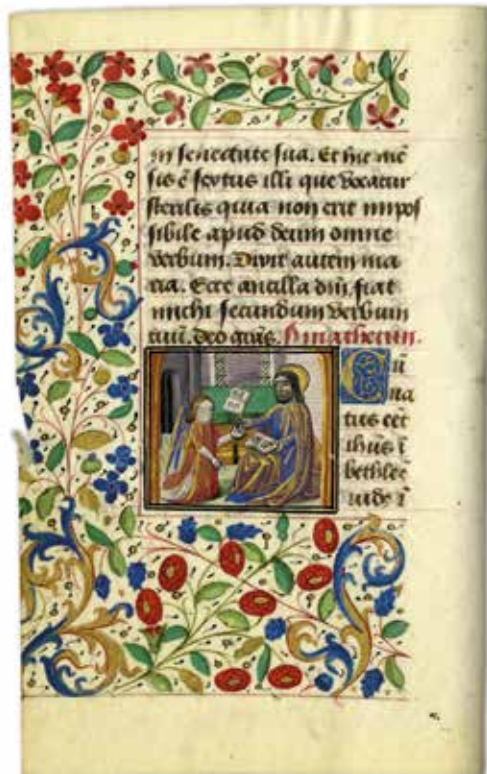 in senectute sua. Et hic mē
sis ē sextus illi que vocatur
sterilis quia non erit impos
sibile apud deum omne
verbum. Dixit autem ma
ria. Ecce ancilla dn̄i fiat
michi secundum verbum
tuū. deo gr̄as. S. matheum.
Cū
na
tus eēt
ihūs ī
bethleē
iude ī